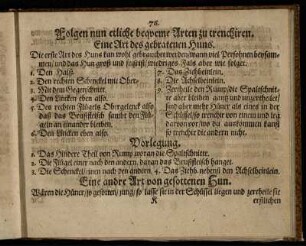 78.
Folgen nun etliche beqveme Arten zu trenchiren.
Eine Art des gebratenen Huns.
Die erste Art des Huns kan wohl gebrauchet werden/wann viel Persohnen beysam-
men/und das Hun groß und fugefäl/wiedriges Fals aber wie folget.
1. Den Halß.
2. Den rechten Schenckel mit Ober-
3. Mit dem Gegenschnitt.
4. Den lincken eben also.
5. Den rechten Flügels Obergelenck also
daß das Brustfleisch sambt den Flü-
geln an einander bleiben.
6. Den lincken eben also.
7. Das Ziehbeinlein.
8. Die Achselbeinlein.
9. Zertheile den Rump/die Spaltschnit-
te aber bleiben gantz und unzertheilet/
sind aber mehr Hüner als eines in der
Schüssel/so trenchir von einem und leg
davor/wo du auskommen kanst
so trenchir die andern nicht.
Vorlegung.
1. Das Hindere Theil von Rump woran die Spaltschnitte.
2. Die Flügel einer nach den andern, daran das Brustfleisch hanget.
3. Die Schenckel/ einer nach den andern. 4. Das Ziehb. nebenst den Achselbeinlein.
Eine andre Art von gesottenen Hun.
Wären die Hüner/so gesotten/ jung/so lasse sie in der Schüssel liegen und zertheile sie
K
erstlichen